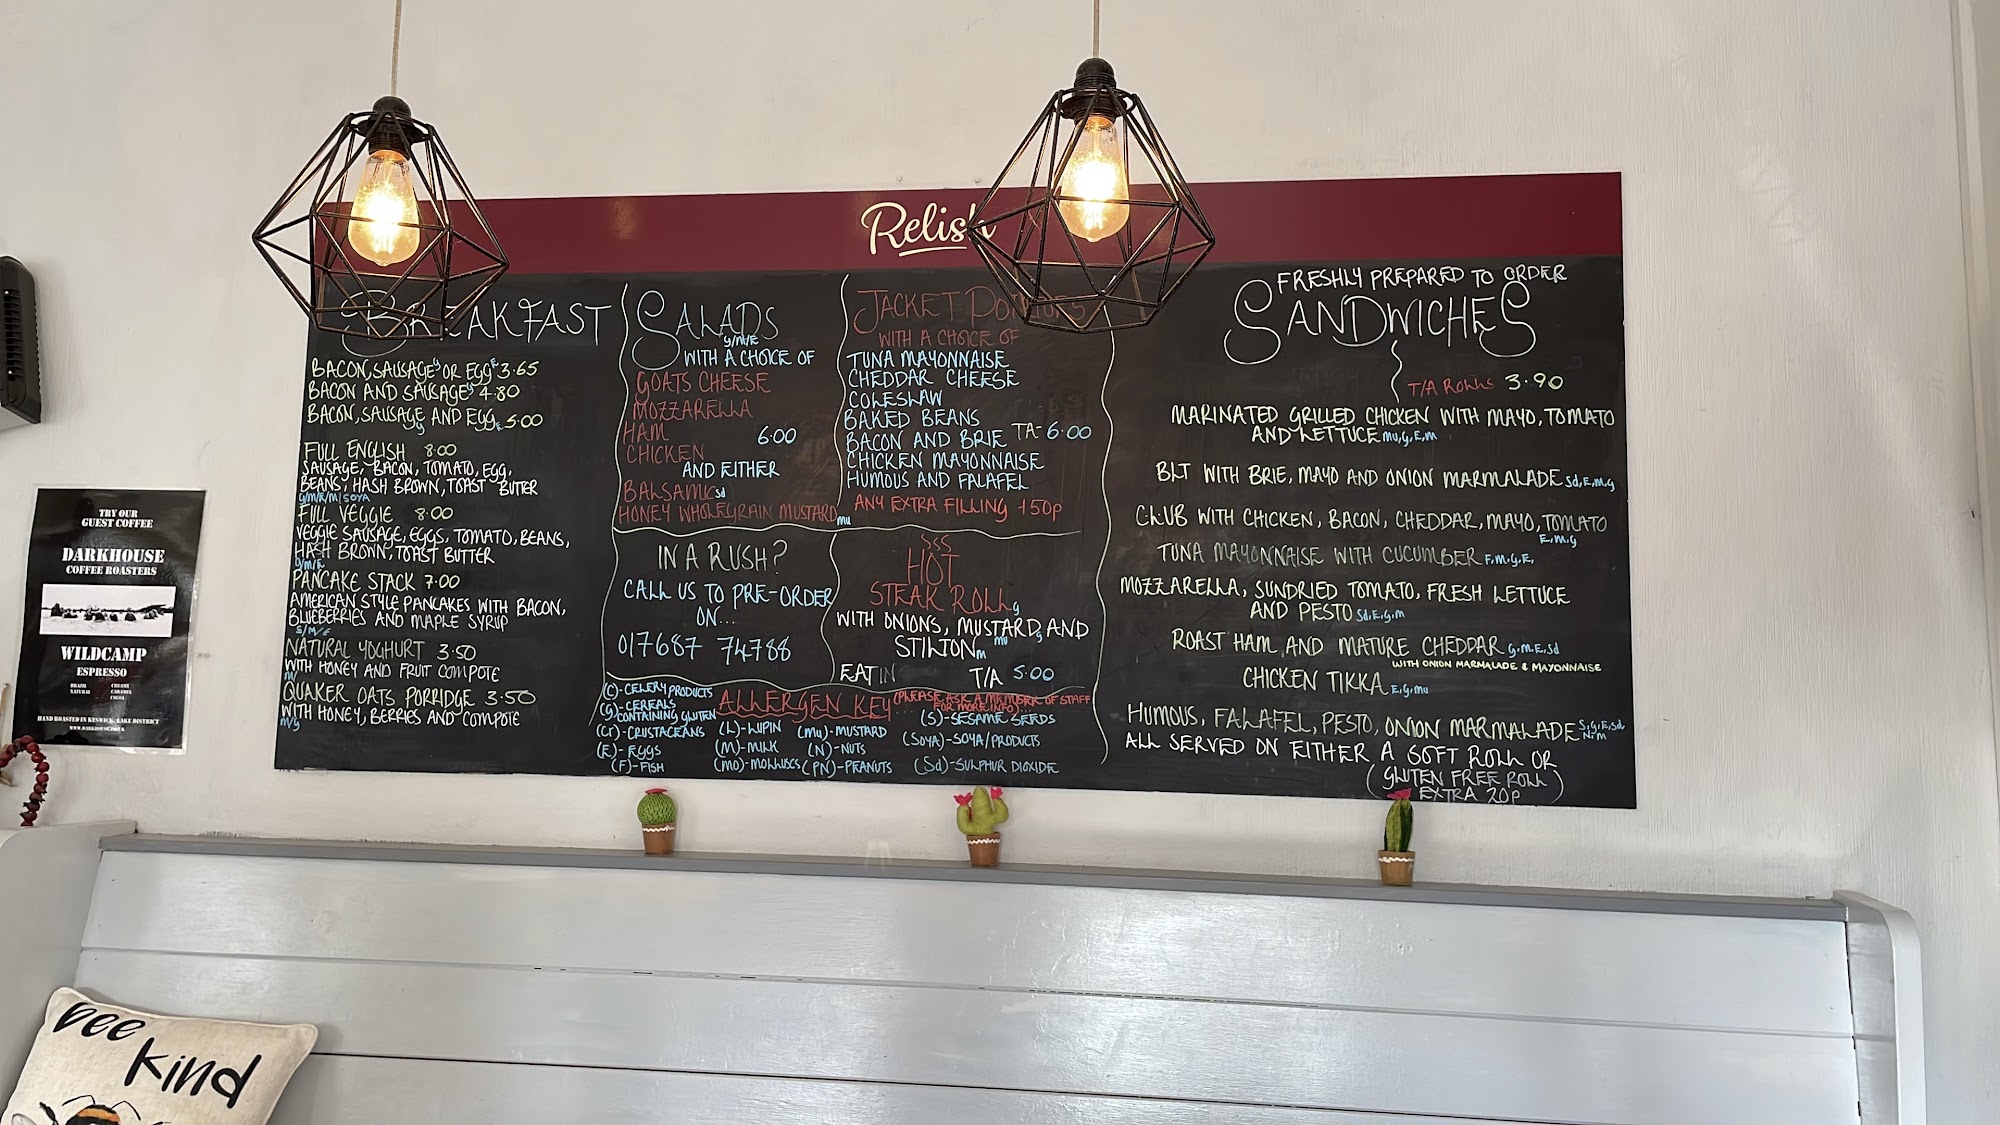 Relish
BREAKFAST
BACON, SAUSAGE g OR EGG E 3.65
BACON AND SAUSAGE g 4.80
BACON, SAUSAGE g AND EGG E 5.00
FULL ENGLISH 8.00
SAUSAGE, BACON, TOMATO, EGG,
BEANS, HASH BROWN, TOAST BUTTER
g/M/E/M/SOYA
FULL VEGGIE 8.00
VEGGIE SAUSAGE, EGGS, TOMATO, BEANS,
HASH BROWN, TOAST BUTTER
g/M/E
PANCAKE STACK 7.00
AMERICAN STYLE PANCAKES WITH BACON,
BLUEBERRIES AND MAPLE SYRUP
NATURAL YOGHURT 3.50
WITH HONEY AND FRUIT COMPOTE
M
QUAKER OATS PORRIDGE 3.50
WITH HONEY, BERRIES AND COMPOTE
M/g
SALADS
g/M/E
WITH A CHOICE OF
GOATS CHEESE
MOZZARELLA
HAM
6.00
CHICKEN
AND EITHER
BALSAMIC sd
HONEY WHOLEGRAIN MUSTARD mu
JACKET POTATOES
WITH A CHOICE OF
TUNA MAYONNAISE
CHEDDAR CHEESE
COLESLAW
BAKED BEANS
BACON AND BRIE TA- 6.00
CHICKEN MAYONNAISE
HUMOUS AND FALAFEL
ANY EXTRA FILLING +50p
IN A RUSH?
CALL US TO PRE-ORDER
ON...
017687 74788
HOT
STEAK ROLL g
WITH ONIONS, MUSTARD AND
mu
STILTON m
EAT IN T/A 5.00
ALLERGEN KEY (PLEASE ASK A MEMBER OF STAFF
FOR MORE INFO)...
(C)-CELERY PRODUCTS
(G)-CEREALS
CONTAINING GLUTEN
(Cr)-CRUSTACEANS
(E)-EGGS
(F)-FISH
(L)-LUPIN
(M)-MILK
(MO)-MOLLUSCS
(mu)-MUSTARD
(N)-NUTS
(PN)-PEANUTS
(S)-SESAME SEEDS
(SOYA)-SOYA/PRODUCTS
(Sd)-SULPHUR DIOXIDE
FRESHLY PREPARED TO ORDER
SANDWICHES
T/A ROLLS 3.90
MARINATED GRILLED CHICKEN WITH MAYO, TOMATO
AND LETTUCE mu, g, E, m
BLT WITH BRIE, MAYO AND ONION MARMALADE Sd, E, M, g
CLUB WITH CHICKEN, BACON, CHEDDAR, MAYO, TOMATO
E, M, g
TUNA MAYONNAISE WITH CUCUMBER F, M, g, E,
MOZZARELLA, SUNDRIED TOMATO, FRESH LETTUCE
AND PESTO Sd, E, G, M
ROAST HAM AND MATURE CHEDDAR G, M, E, Sd
WITH ONION MARMALADE & MAYONNAISE
CHICKEN TIKKA E, g, mu
HUMOUS, FALAFEL, PESTO, ONION MARMALADE S, g, E, Sd
N, M
ALL SERVED ON EITHER A SOFT ROLL OR
(GLUTEN FREE ROLL)
EXTRA 20p
TRY OUR
GUEST COFFEE
DARKHOUSE
COFFEE ROASTERS
WILDCAMP
ESPRESSO
BRAZIL
NATURAL
CREAMY
CARAMEL
COCOA
HAND ROASTED IN KESWICK, LAKE DISTRICT
bee
kind